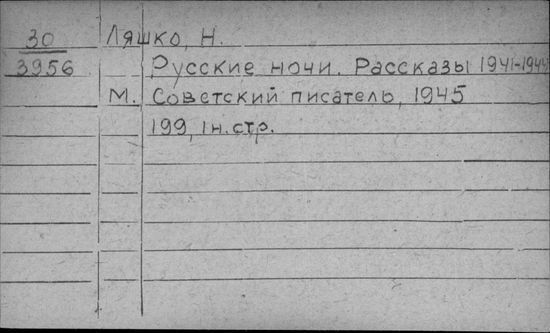 30 Ляшко, Н.
3956 Русские ночи. Рассказы 1941-1944
М. Советский писатель, 1945
199, 1н. стр.